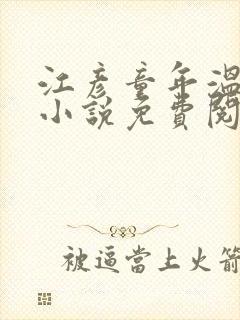 江彥童年溫
小說免費閱
被逼當上火箭